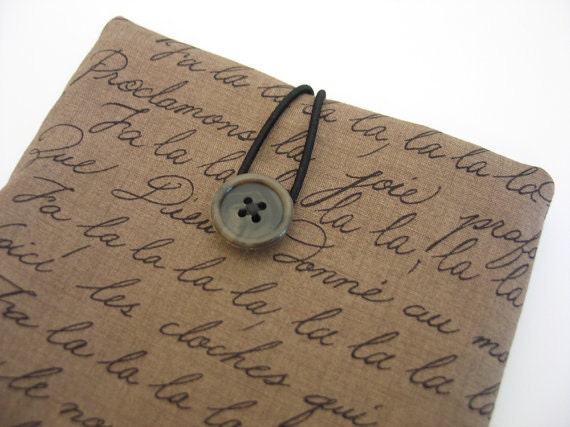 Fa la la la la, la la la la
Proclamons la joie
Fa la la la la, la la la
Que Dieu donné au
Fa la la la la, la la la la
les cloches qui
la la la la, la la la la